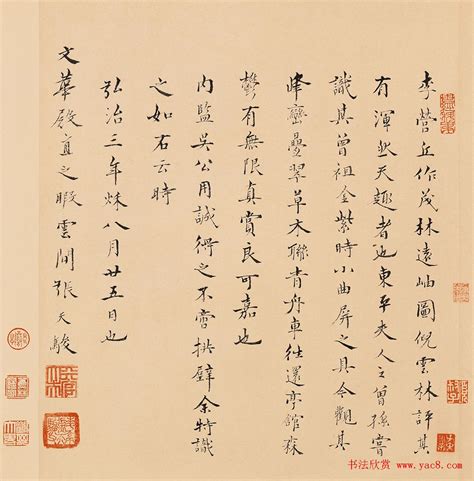 李營丘作茂林遠岫圖倪雲林評其
有渾然天趣者也東平夫人之曾孫嘗
識其曾祖金紫時小曲屏之具今觀其
峰巒疊翠草木聯青舟車往還亭館森
鬱有無限真賞良可嘉也
内監吳公用誠得之不啻拱璧余特識
之如右云時
弘治三年秌八月廿五日也
文華殿直之暇雲間張天駿
书法欣赏 www.yac8.com